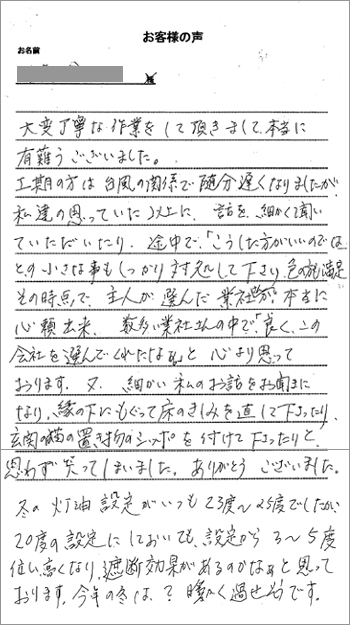 お客様の声
お名前
様
大変丁寧な作業をして頂きまして、本当に
有難うございました。
工期の方は台風の関係で随分遅くなりましたが
私達の思っていた以上に、話を、細かく聞い
ていただいたり、途中で、「こうした方がいいのでは」
との小さな事もしっかり対処して下さり、色の施満足
その時点で、主人が選んだ業社が、本当に
心頼出来、数多い業社さんの中で、「良く、この
会社を選んでくれたなぁ」と心より思って
おります。又、細かい私のお話をお聞きに
なり、縁の下にもぐって床のきしみを直して下さったり、
玄関の猫の置き物のシッポを付けて下さったりと、
思わず笑ってしまいました。ありがとうございました。
冬の灯油設定がいつも23度〜25度でしたが、
20度の設定にしておいても、設定から3〜5度
位い高くなり、遮断効果があるのかなぁと思って
おります。今年の冬は、？暖かく過せそうです。